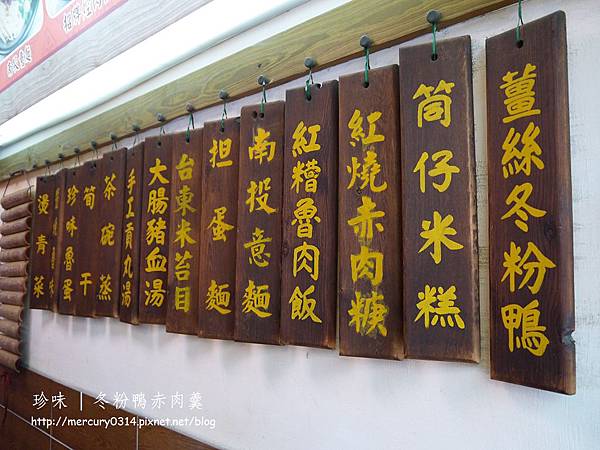 薑絲冬粉鴨
筒仔米糕
紅燒赤肉焿
紅糟魯肉飯
南投意麵
担蛋麵
台東米苔目
大腸豬血湯
手工貢丸湯
茶碗蒸
筍干
珍味魯蛋
燙青菜
珍味 | 冬粉鴨赤肉羹
http://mercury0314.pixnet.net/blog